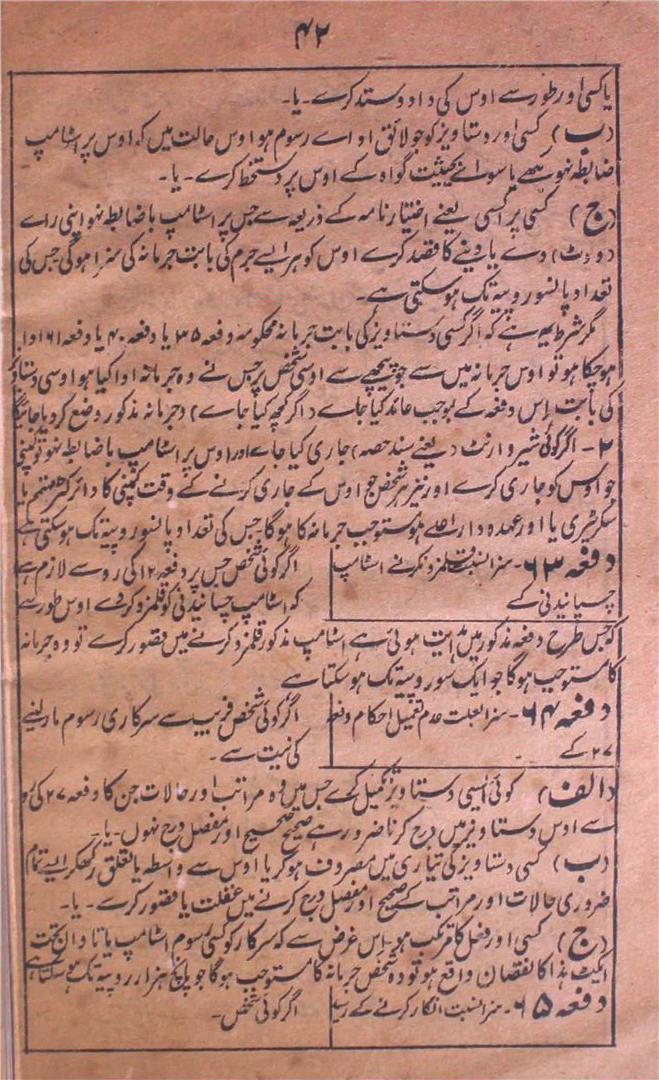 ۴۲
یا کسی اور طور سے اوس کی داد و ستد کرے ۔ یا ۔
(ب) کسی اور دستاویز کو جو لائق اداے رسوم ہو اوس حالت میں کہ اوس پر اسٹامپ
ضابطہ نہو لکھے یا سواے بحیثیت گواہ کے اوس پر دستخط کرے ۔ یا ۔
(ج) کسی پراکسی یعنے اختیار نامہ کے ذریعہ سے جس پر اسٹامپ باضابطہ نہو اپنی راے
(ووٹ) دے یا دینے کا قصد کرے اوس کو ہر ایسے جرم کی بابت جرمانہ کی سزا ہوگی جس کی
تعداد پانسو روپیہ تک ہوسکتی ہے ۔
مگر شرط یہ ہے کہ اگر کسی دستاویز کی بابت جرمانہ محکومہ دفعہ ۳۵ یا دفعہ ۴۰ یا دفعہ ۶۱ ادا
ہوچکا ہو تو اوس جرمانہ میں سے جو پیچھے سے اوسی شخص پر جس نے وہ جرمانہ ادا کیا ہو اوسی دستاویز
کی بابت اِس دفعہ کے بموجب عائد کیا جاے (اگر کچھ کیا جاے) جرمانہ مذکور وضع کردیا جائیگا
۲ ۔ اگر کوئی شیر وارنٹ (یعنے سند حصہ) جاری کیا جاے اور اوس پر اسٹامپ باضابطہ نہو تو کمپنی
جو اوس کو جاری کرے اور نیز ہر شخص جو اوس کے جاری کرنے کے وقت کمپنی کا ڈائرکٹر مہتمم یا
سکرٹری یا اور عہدہ دار اعلے ہو مستوجب جرمانہ کا ہوگا جس کی تعداد پانسو روپیہ تک ہوسکتی ہے
دفعہ ۶۳ ۔ سزا بہ نسبت قلمزد نکرنے اسٹامپ
چسپانیدنی کے
اگر کوئی شخص جس پر دفعہ ۱۲ کی رو سے لازم ہے
کہ اسٹامپ چسپانیدنی کو قلمزد کردے اوس طور سے
کہ جس طرح دفعہ مذکور میں ہدایت ہوئی ہے اسٹامپ مذکور قلمزد کرنے میں قصور کرے تو وہ جرمانہ
کا مستوجب ہوگا جو ایک سو روپیہ تک ہوسکتا ہے
دفعہ ۶۴ ۔ سزا بعلت عدم تعمیل احکام دفعہ
۲۷ کے ۔
اگر کوئی شخص فریب سے سرکاری رسوم مار لینے
کی نیت سے ۔
(الف) کوئی ایسی دستاویز تکمیل کرے جس میں وہ مراتب اور حالات جن کا دفعہ ۲۷ کی رو
سے اوس دستاویز میں درج کرنا ضرور ہے صحیح صحیح اور مفصل درج نہوں ۔ یا ۔
(ب) کسی دستاویز کی تیاری میں مصروف ہوکر یا اوس سے واسطہ یا تعلق رکھکر ایسے تمام
ضروری حالات اور مراتب کے صحیح اور مفصل درج کرنے میں غفلت یا قصور کرے ۔ یا ۔
(ج) کسی اور فعل کا مرتکب ہو اِس غرض سے کہ سرکار کو کسی رسوم اسٹامپ یا تاوان تحت
ایکٹ ہذا کا نقصان واقع ہو تو وہ شخص جرمانہ کا مستوجب ہوگا جو پانچ ہزار روپیہ تک ہوسکتا ہے
دفعہ ۶۵ ۔ سزا بہ نسبت انکار کرنے کے رسید
اگر کوئی شخص ۔